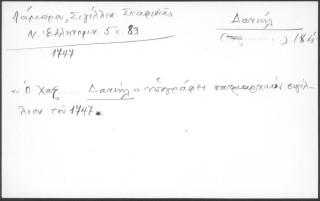 Λάμπρου, Σιγίλλια Σκαφιδιᾶς
Ν. Ἑλληνομν. 5 κ. 83
1747
Δανιήλ
(........) 18
«Ὁ Χατζ .... Δανιήλ» ὑπογράφει πατριαρχικὸν σιγίλ-
λιον τοῦ 1747.